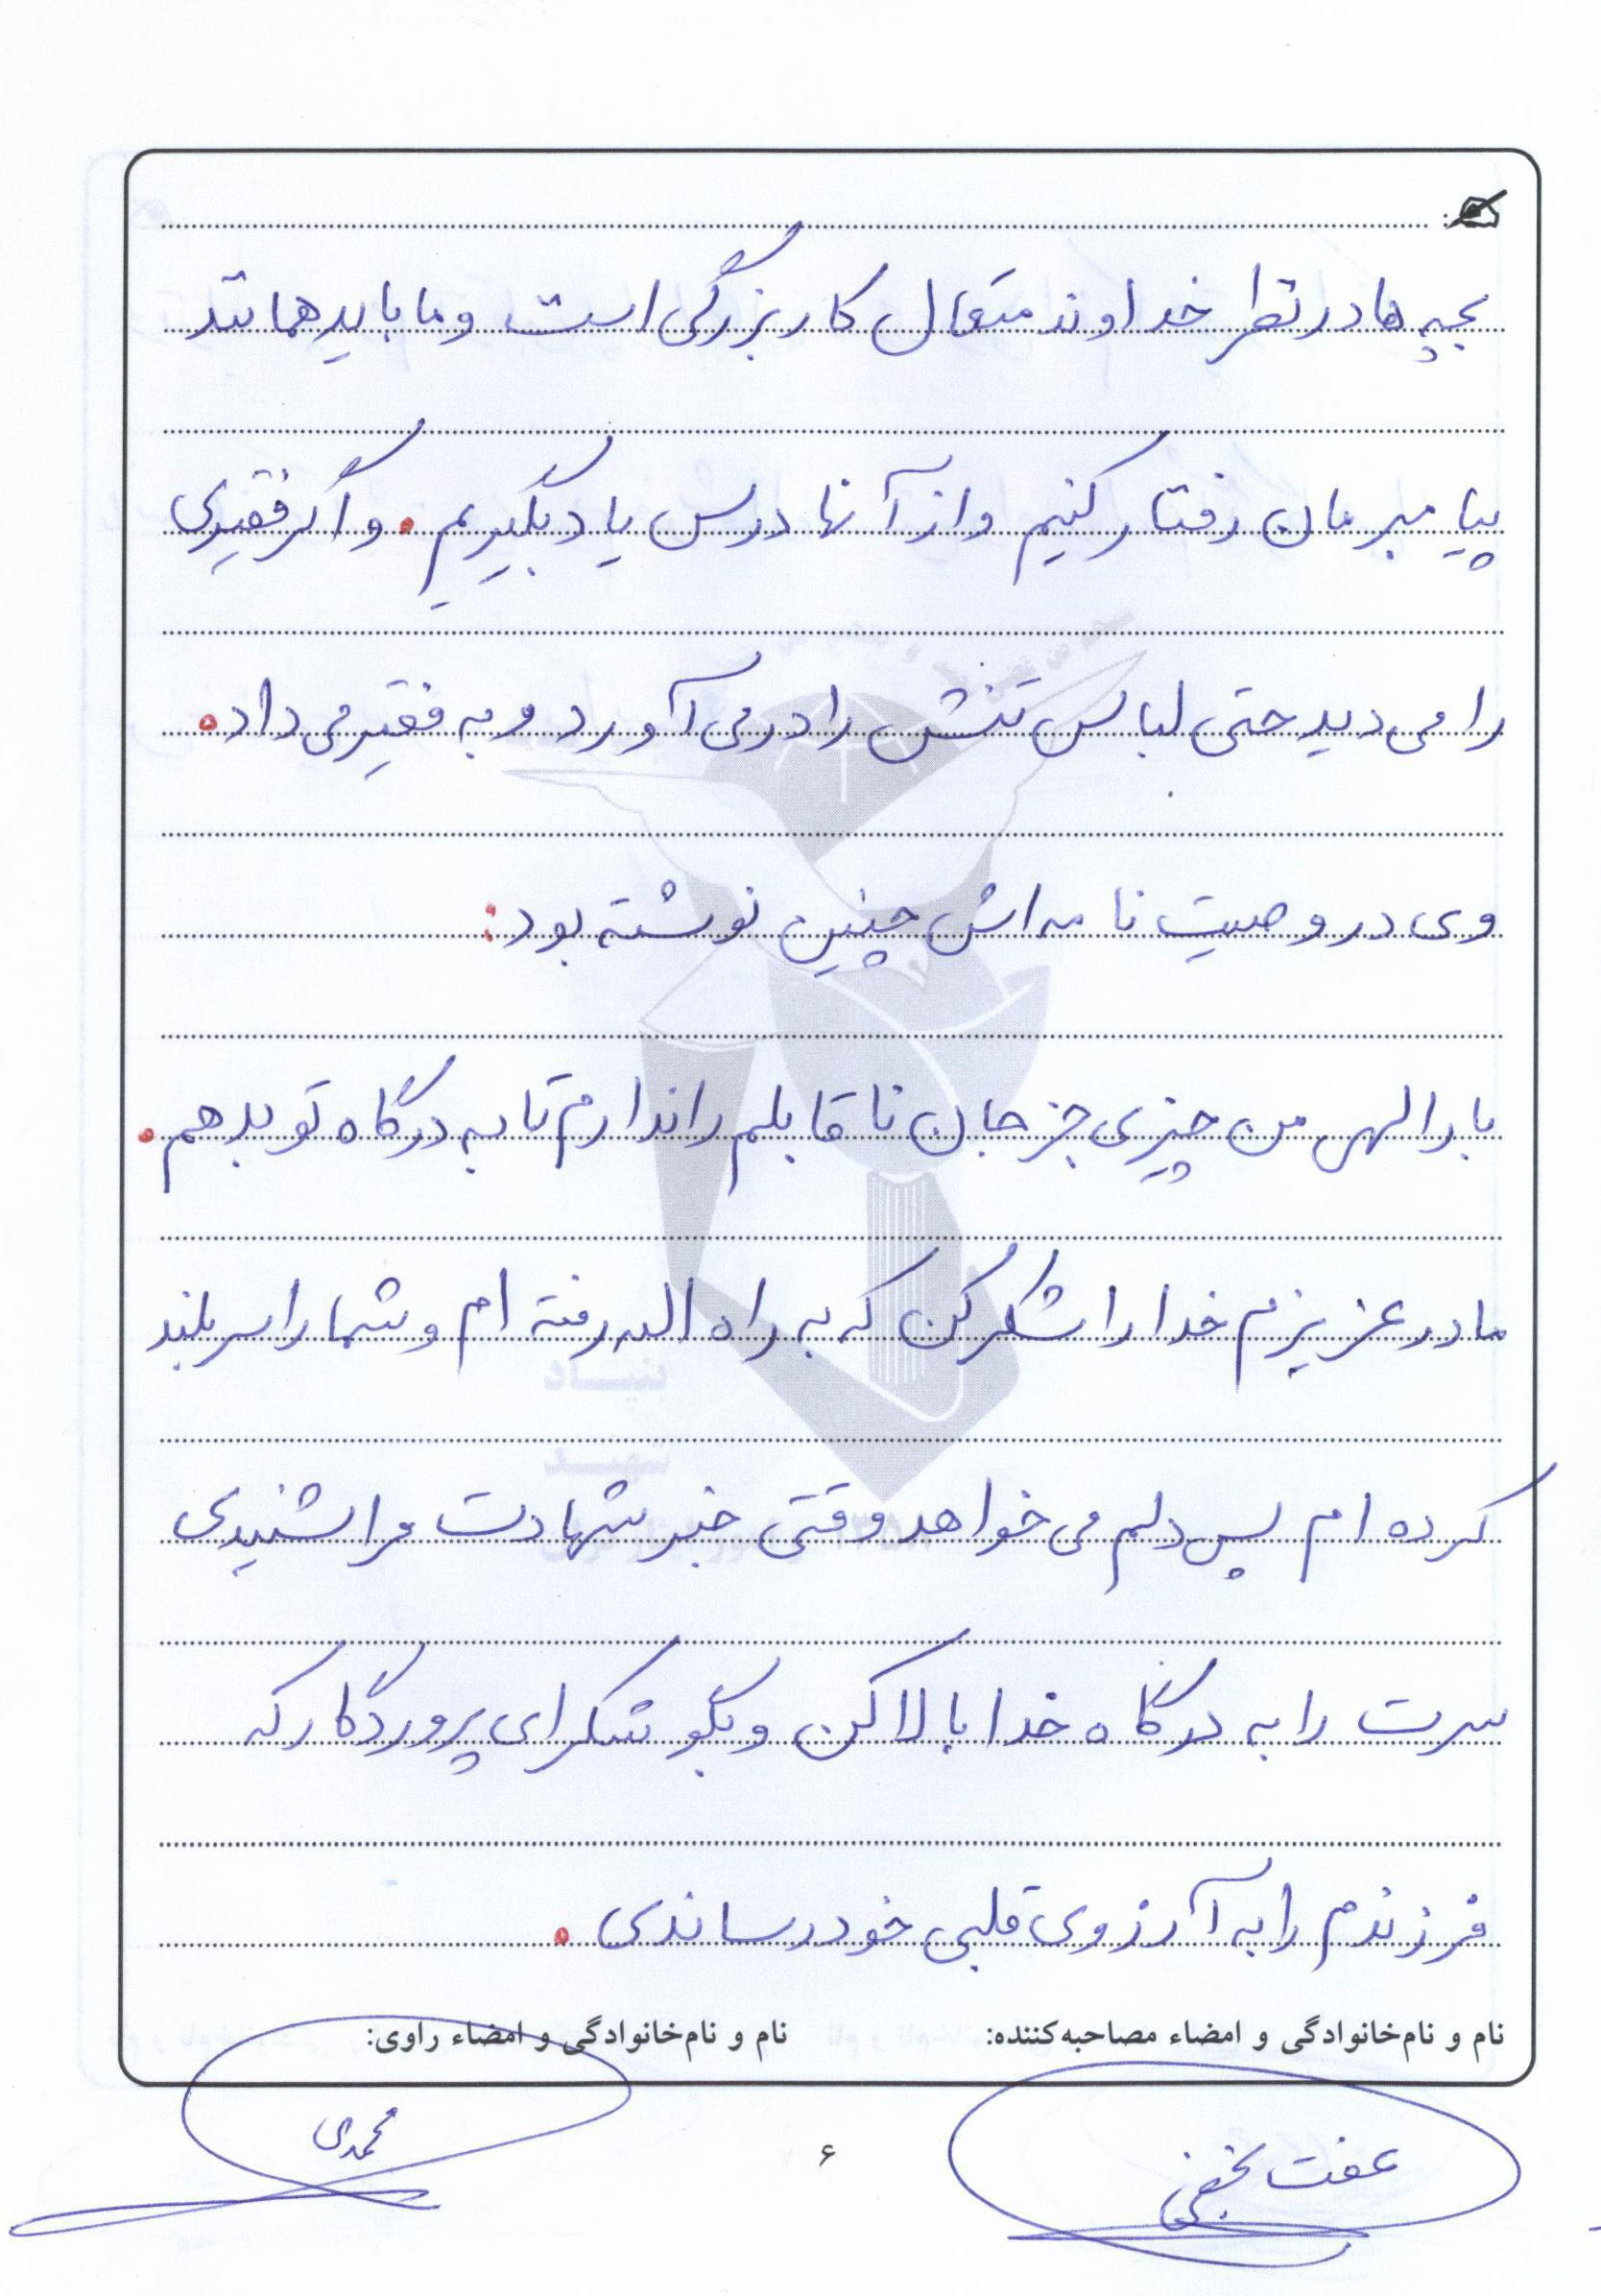 بچه ها در نظر خداوند متعال کار بزرگی است و ما باید همانند
پیامبرمان رفتار کنیم و از آنها درس یاد بگیریم . و اگر فقیری
را می دید حتی لباس تنش را در می آورد و به فقیر می داد .
وی در وصیت نامه اش چنین نوشته بود :
بارالهی من چیزی جز جان ناقابلم را ندارم تا به درگاه تو بدهم .
مادر عزیزم خدا را شکر کن که به راه الله رفته ام و شما را سربلند
کرده ام پس دلم می خواهد وقتی خبر شهادت مرا شنیدی
سرت را به درگاه خدا بالا کن و بگو شکر ای پروردگار که
فرزندم را به آرزوی قلبی خود رساندی .
نام و نام‌خانوادگی و امضاء مصاحبه‌کننده: نام و نام‌خانوادگی و امضاء راوی:
عفت نجفی محمدی
۶
بنیاد
شهید